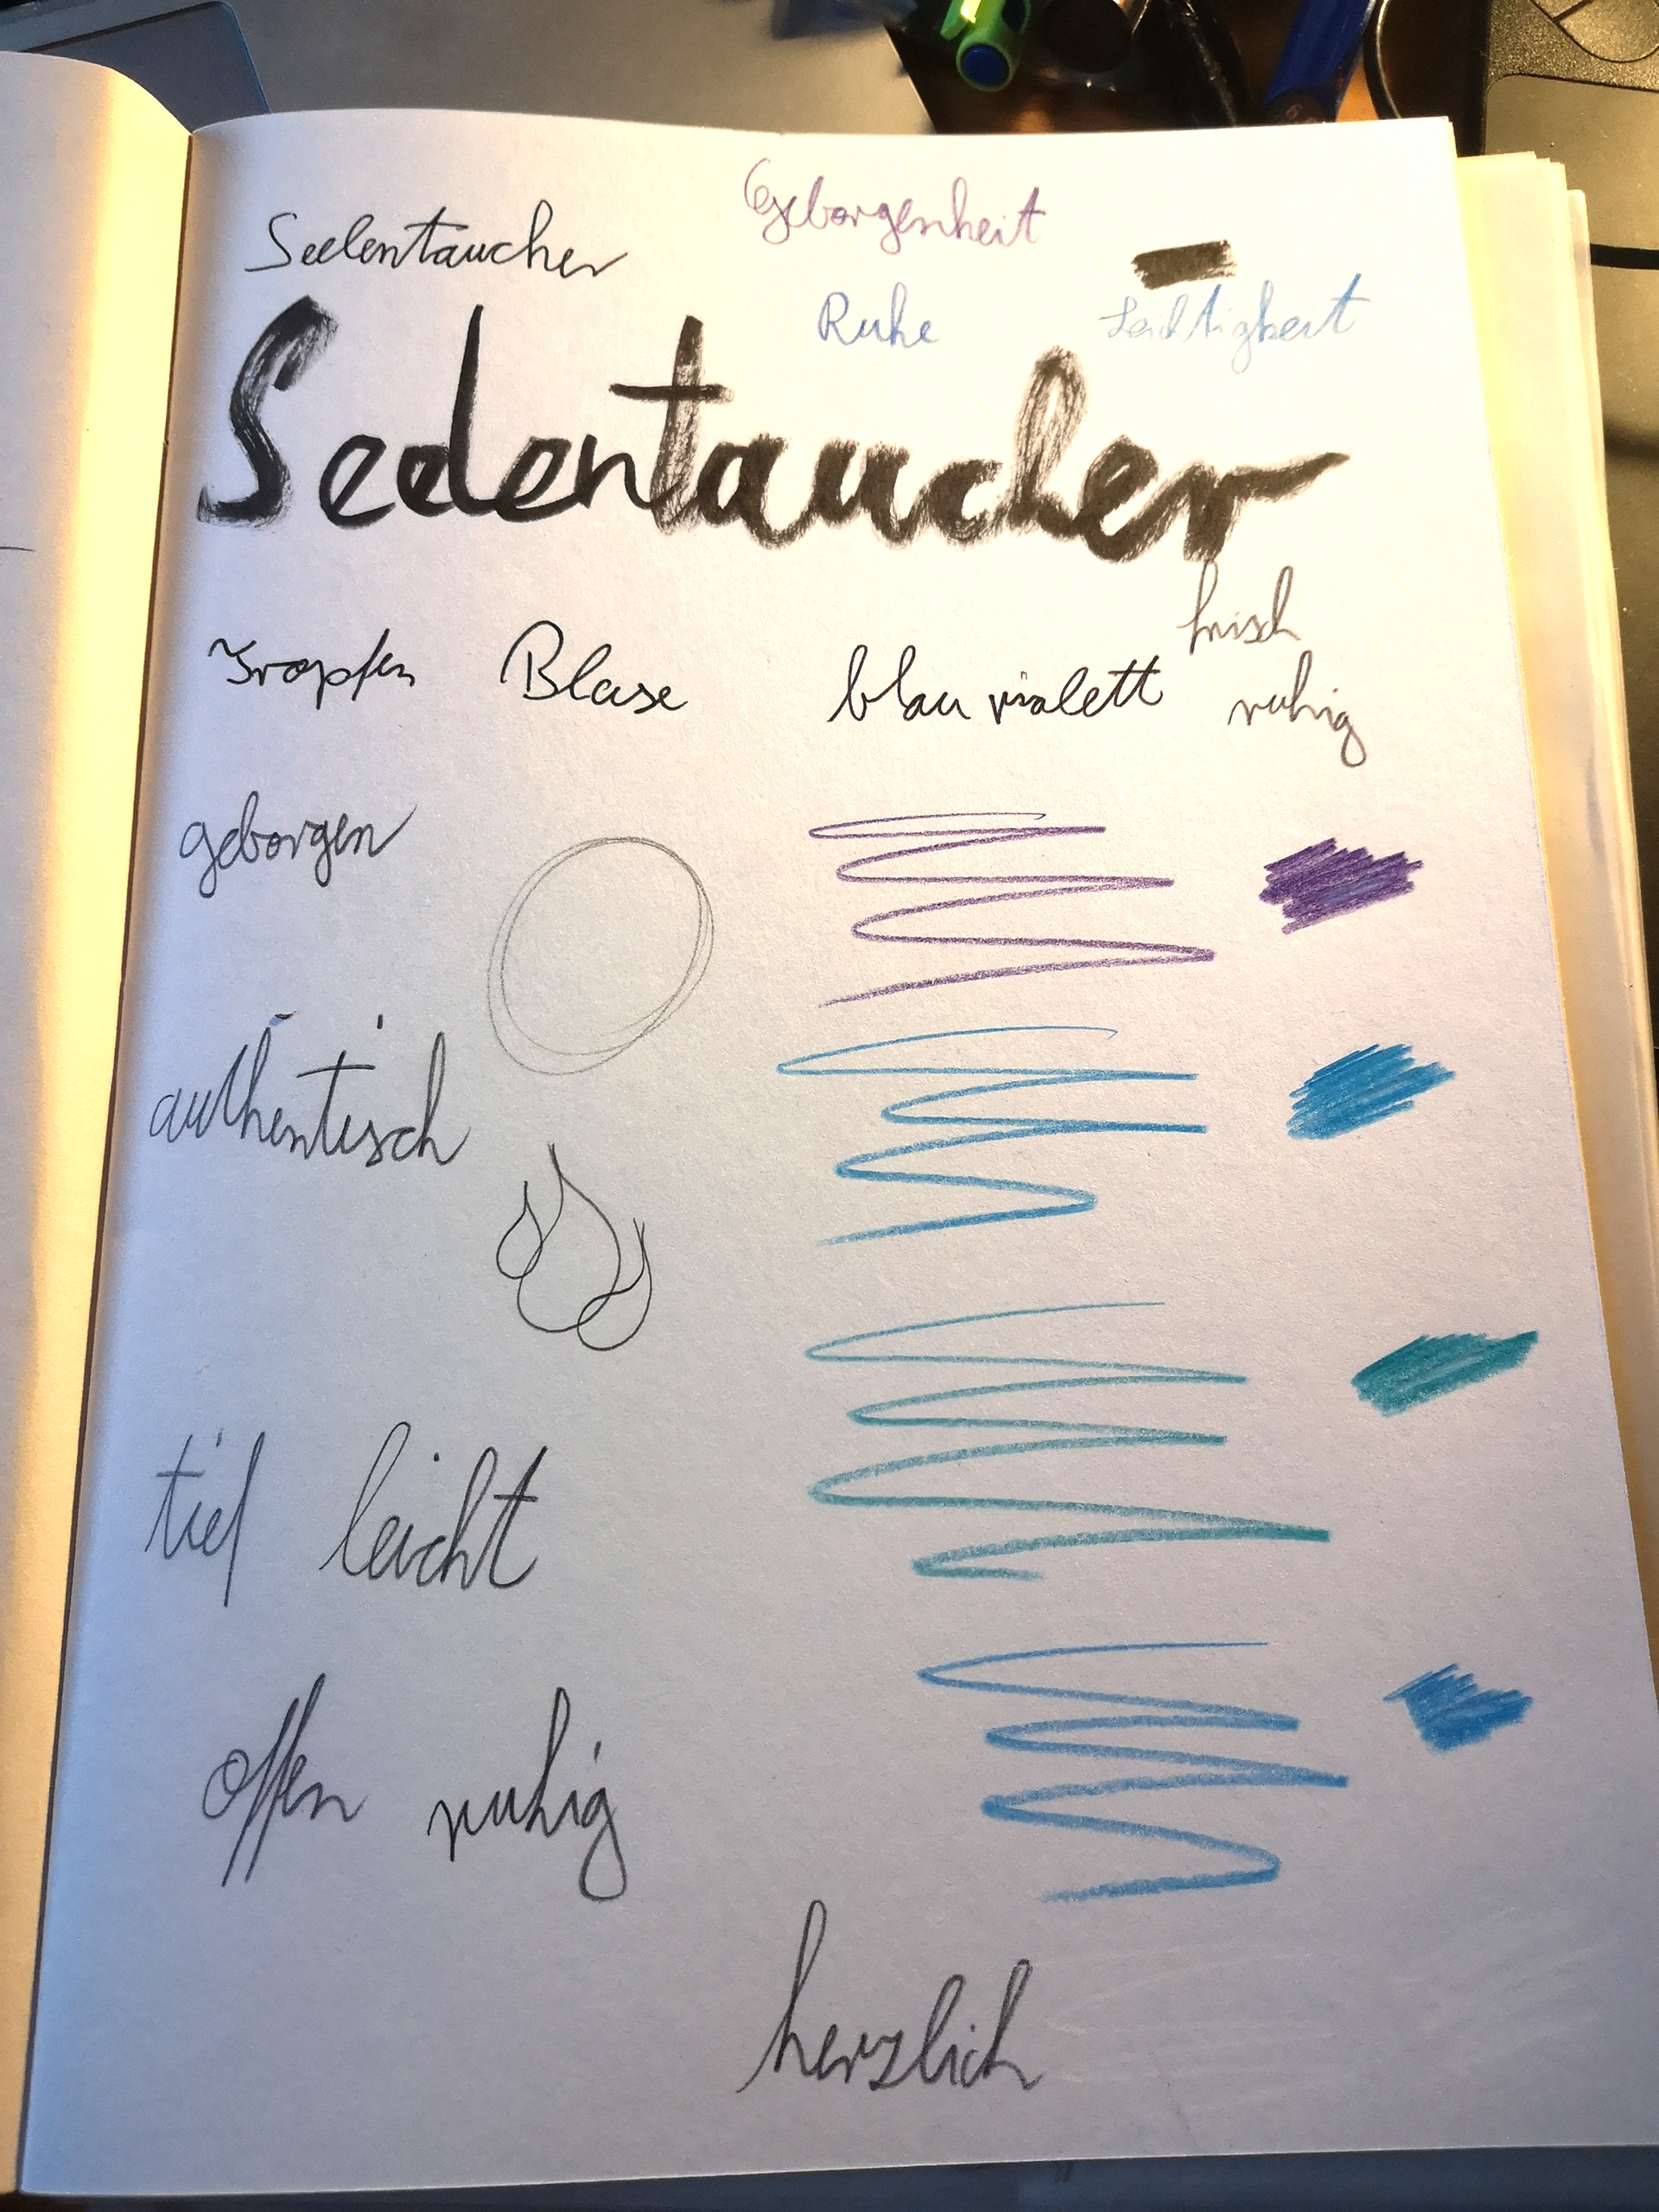 Geborgenheit
Seelentaucher
Ruhe Leichtigkeit
Seelentaucher
frisch
Tropfen Blase blau violett ruhig
geborgen
authentisch
tief leicht
offen ruhig
herzlich